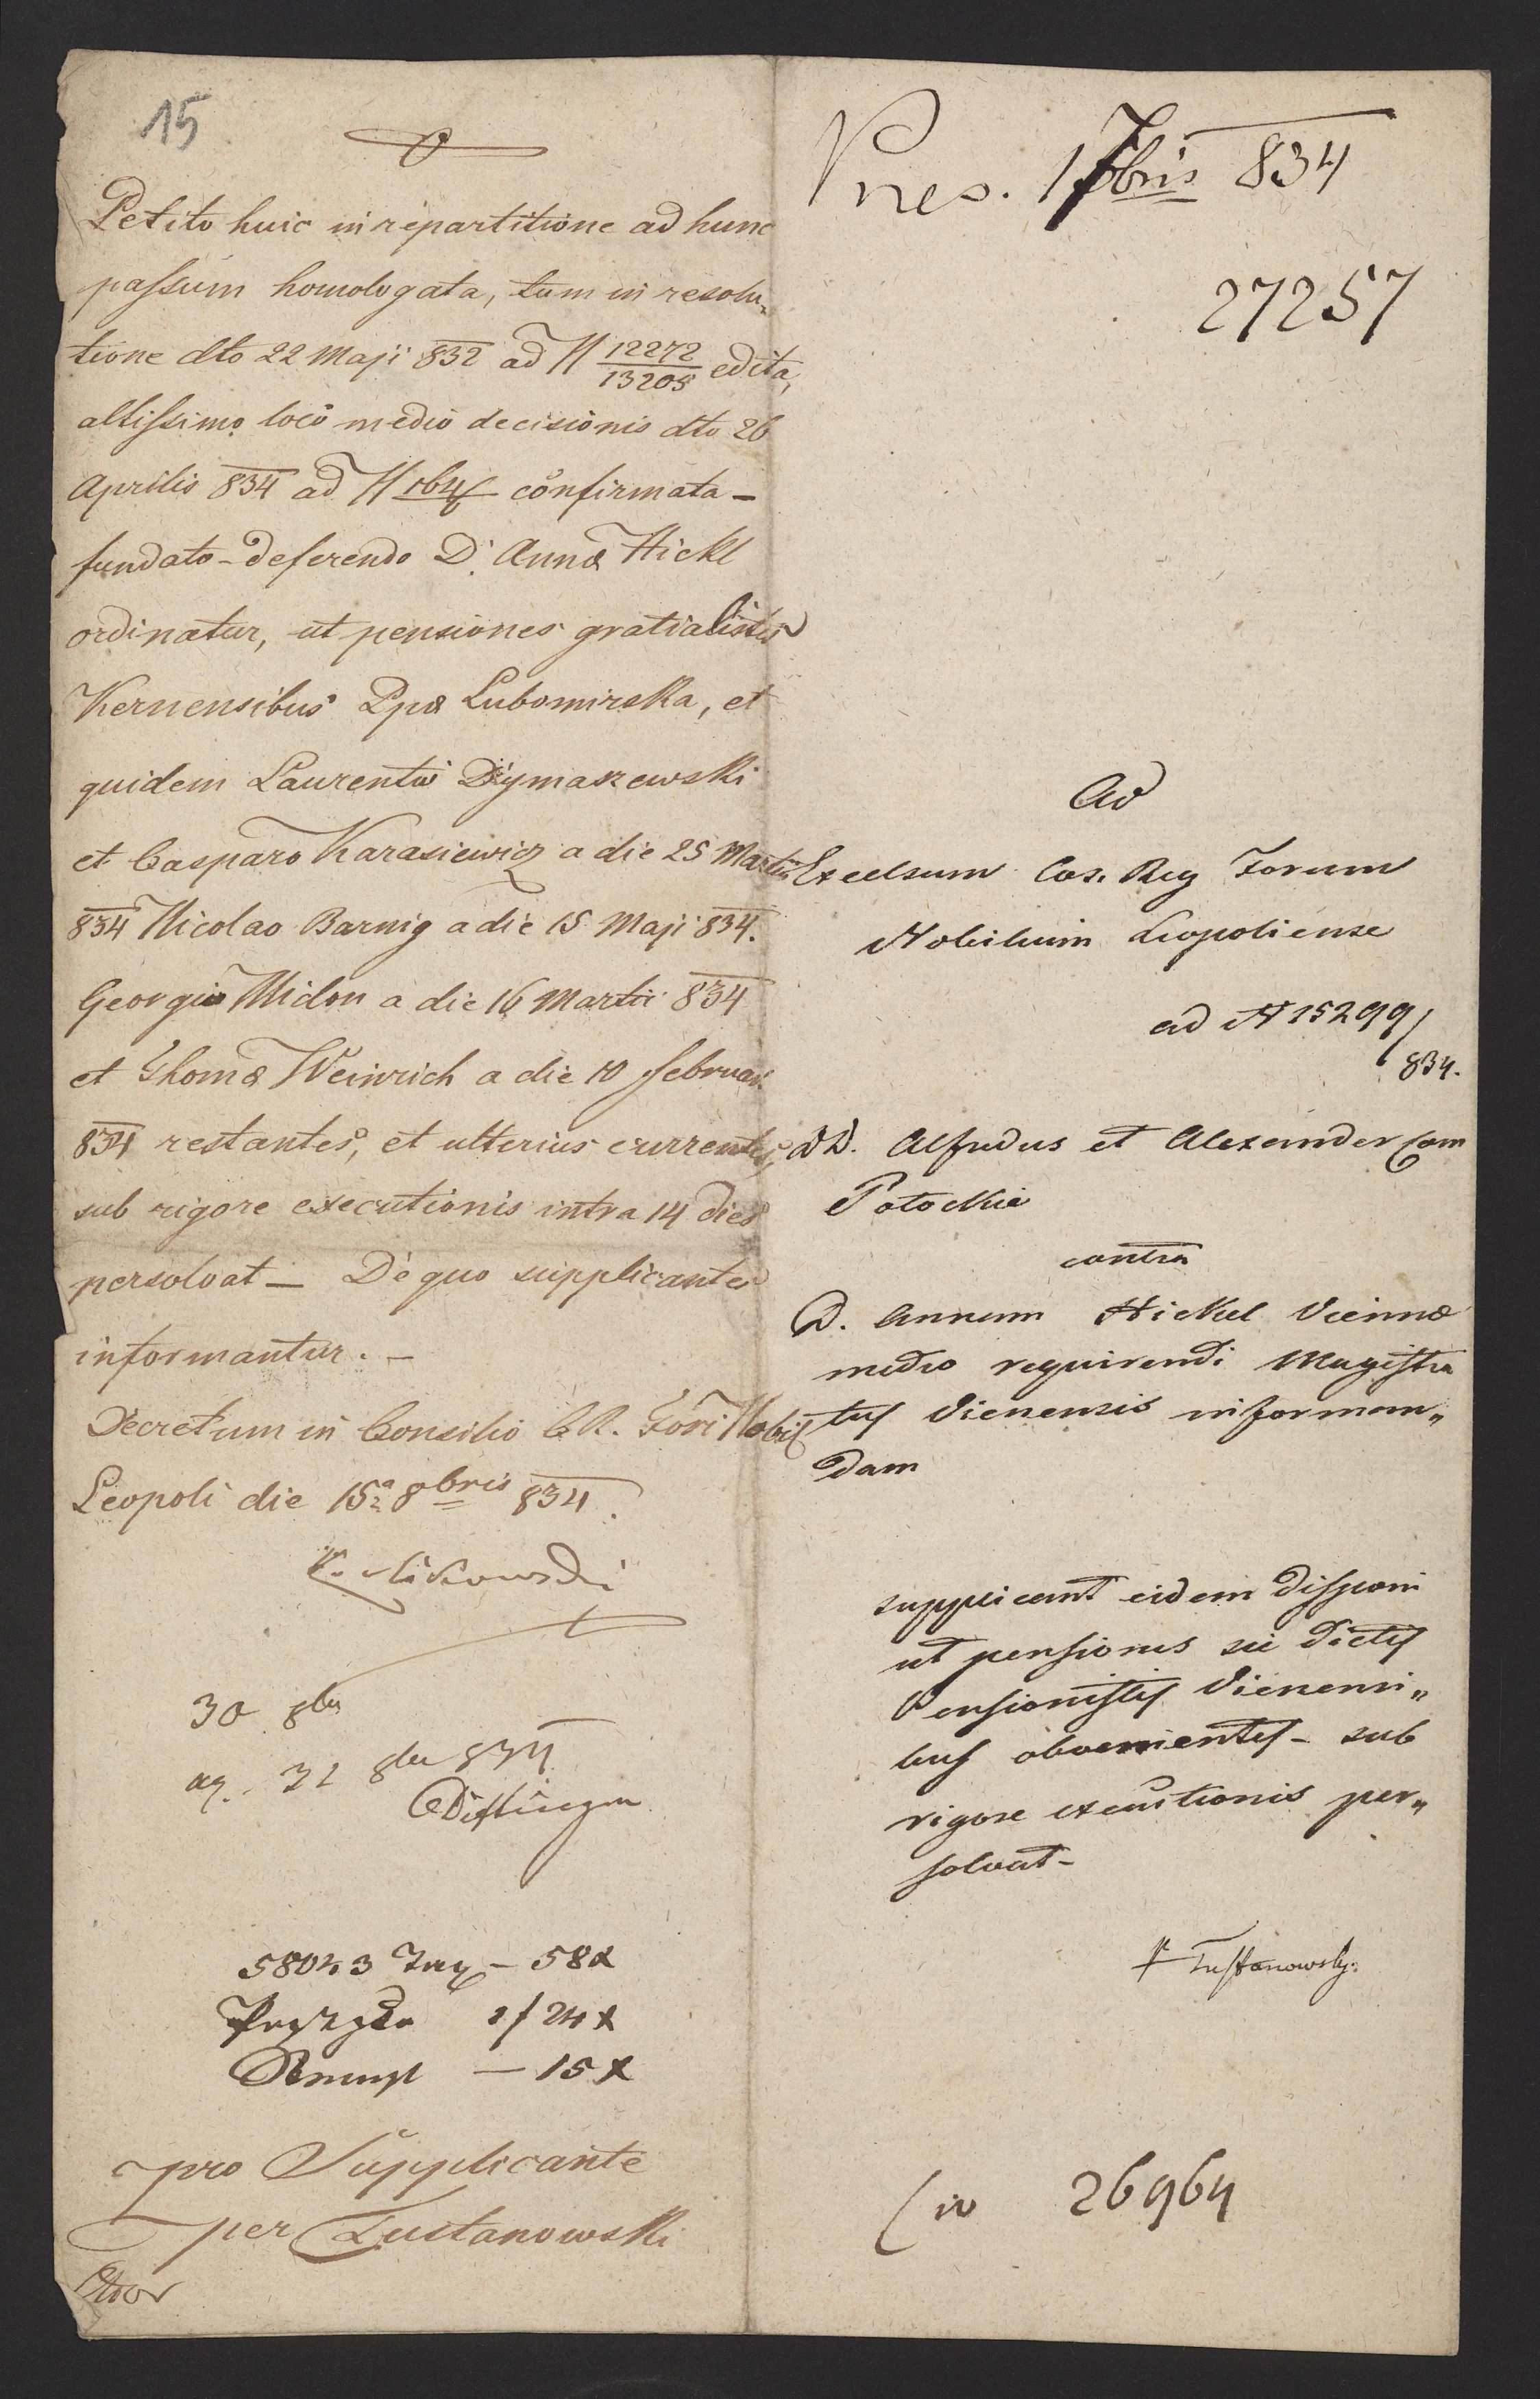 15
Petito huic in repartitione ad hunc
passum homologata, tum in resolu„
tione dto 22 Maji 832 ad N 12272/13205 edita,
altissimo loco medio decisionis dto 26
Aprilis 834 ad N confirmata –
fundato – deferendo D. Annæ Hickl
ordinatur, ut pensiones gratialistis
Viennensibus Ppæ Lubomirska, et
quidem Laurentio Dymaszewski
et Casparo Karasiewicz a die 25 Martii
834 Nicolao Barnig a die 15 Maji 834.
Georgio Midon a die 16 Martii 834
et Thomæ Weinrich a die 10 februar.
834 restantes, et ulterius currentes,
sub rigore executionis intra 14 dies
persolvat – De quo supplicantes
informantur. –
Decretum in Consilio C.R. Fori Nobil
Leopoli die 15a 8bris 834.
30 8br
32 8br 834
58043 Tax – 58x
1f 24x
– 15x
pro Supplicante
per Tustanowski
Pres. 1 7bris 834
27257
Ad
Excelsum Cæs. Reg Forum
Nobilium Leopoliense
ad N 15299/
834.
DD. Alfredus et Alexander Com
Potockie
contra
D. Annam Hickel Viennæ
medio requirendi Magistra
tus Vienensis informan„
dam
supplicant eidem disponi
ut pensiones sic dictis
Pensionistis Vienensi„
bus obvenientes – sub
rigore executionis per„
solvat –
Tustanowsky.
26964